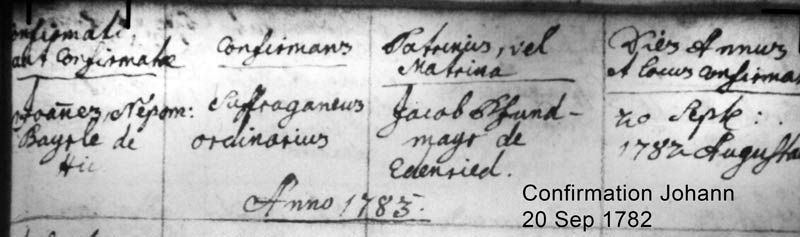 Confirmati.
aut Confirmatæ
Confirmans
Patrinus, vel
Matrina
Dies Annus
et Locus Confirma
Joañes Nepom:
Bayrle de
Hic
Suffraganeus
ordinarius
Jacob Pfund-
mayr de
Edenried.
20 Sept:
1782 Augusta
Anno 1783.
Confirmation Johann
20 Sep 1782